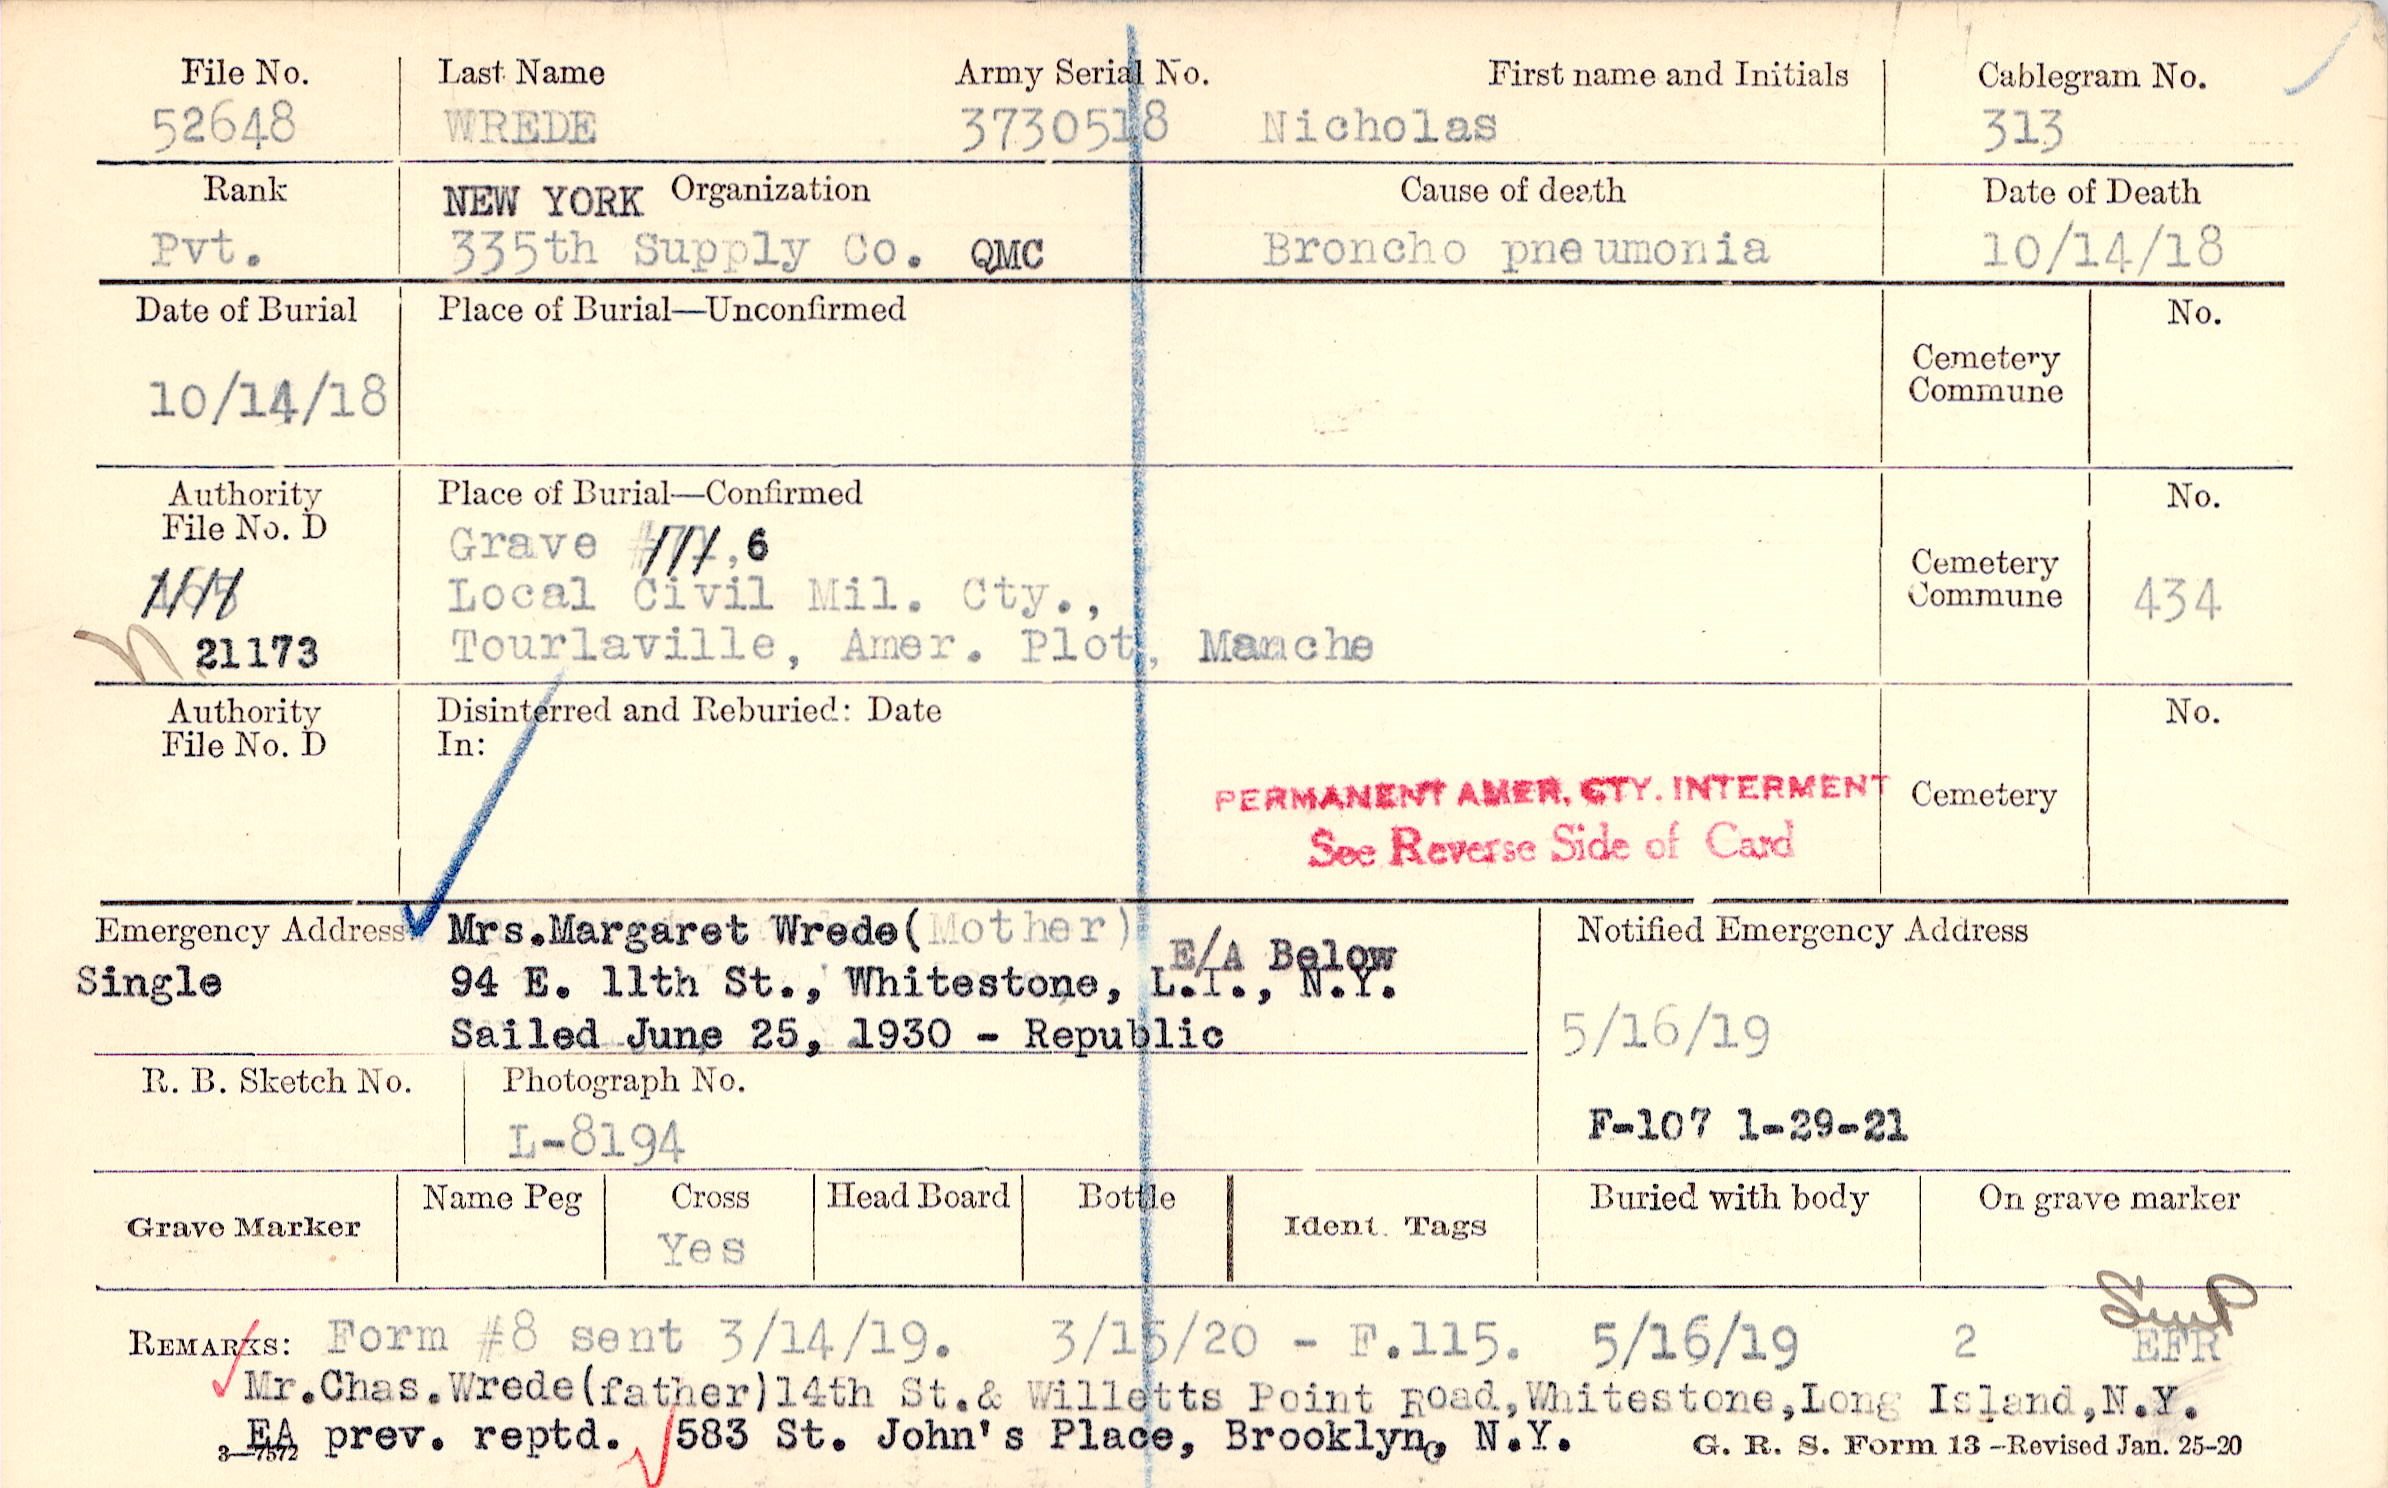 File No. Last Name Army Serial No. First name and Initials Cablegram No.
52648 WREDE 3730518 Nicholas 313
Rank NEW YORK Organization Cause of death Date of Death
Pvt. 335th Supply Co. QMC Broncho pneumonia 10/14/18
Date of Burial Place of Burial—Unconfirmed No.
Cemetery
Commune
10/14/18
Authority Place of Burial—Confirmed No.
File No. D
Grave 6
Local Civil Mil. Cty., Cemetery
Commune 434
21173 Tourlaville, Amer. Plot, Manche
Authority Disinterred and Reburied: Date No.
File No. D In:
PERMANENT AMER. CTY. INTERMENT Cemetery
See Reverse Side of Card
Emergency Address: Mrs.Margaret Wrede(Mother) Notified Emergency Address
E/A Below
Single 94 E. 11th St., Whitestone, L.I., N.Y.
Sailed June 25, 1930 - Republic 5/16/19
R. B. Sketch No. Photograph No.
L-8194 F-107 1-29-21
Grave Marker Name Peg Cross Head Board Bottle Ident. Tags Buried with body On grave marker
Yes
REMARKS: Form #8 sent 3/14/19. 3/15/20 - F.115. 5/16/19 2 EFR
Mr.Chas.Wrede(father)14th St.& Willetts Point Road,Whitestone,Long Island,N.Y.
EA prev. reptd. 583 St. John's Place, Brooklyn, N.Y.
3—7572 G. R. S. Form 13 -Revised Jan. 25-20